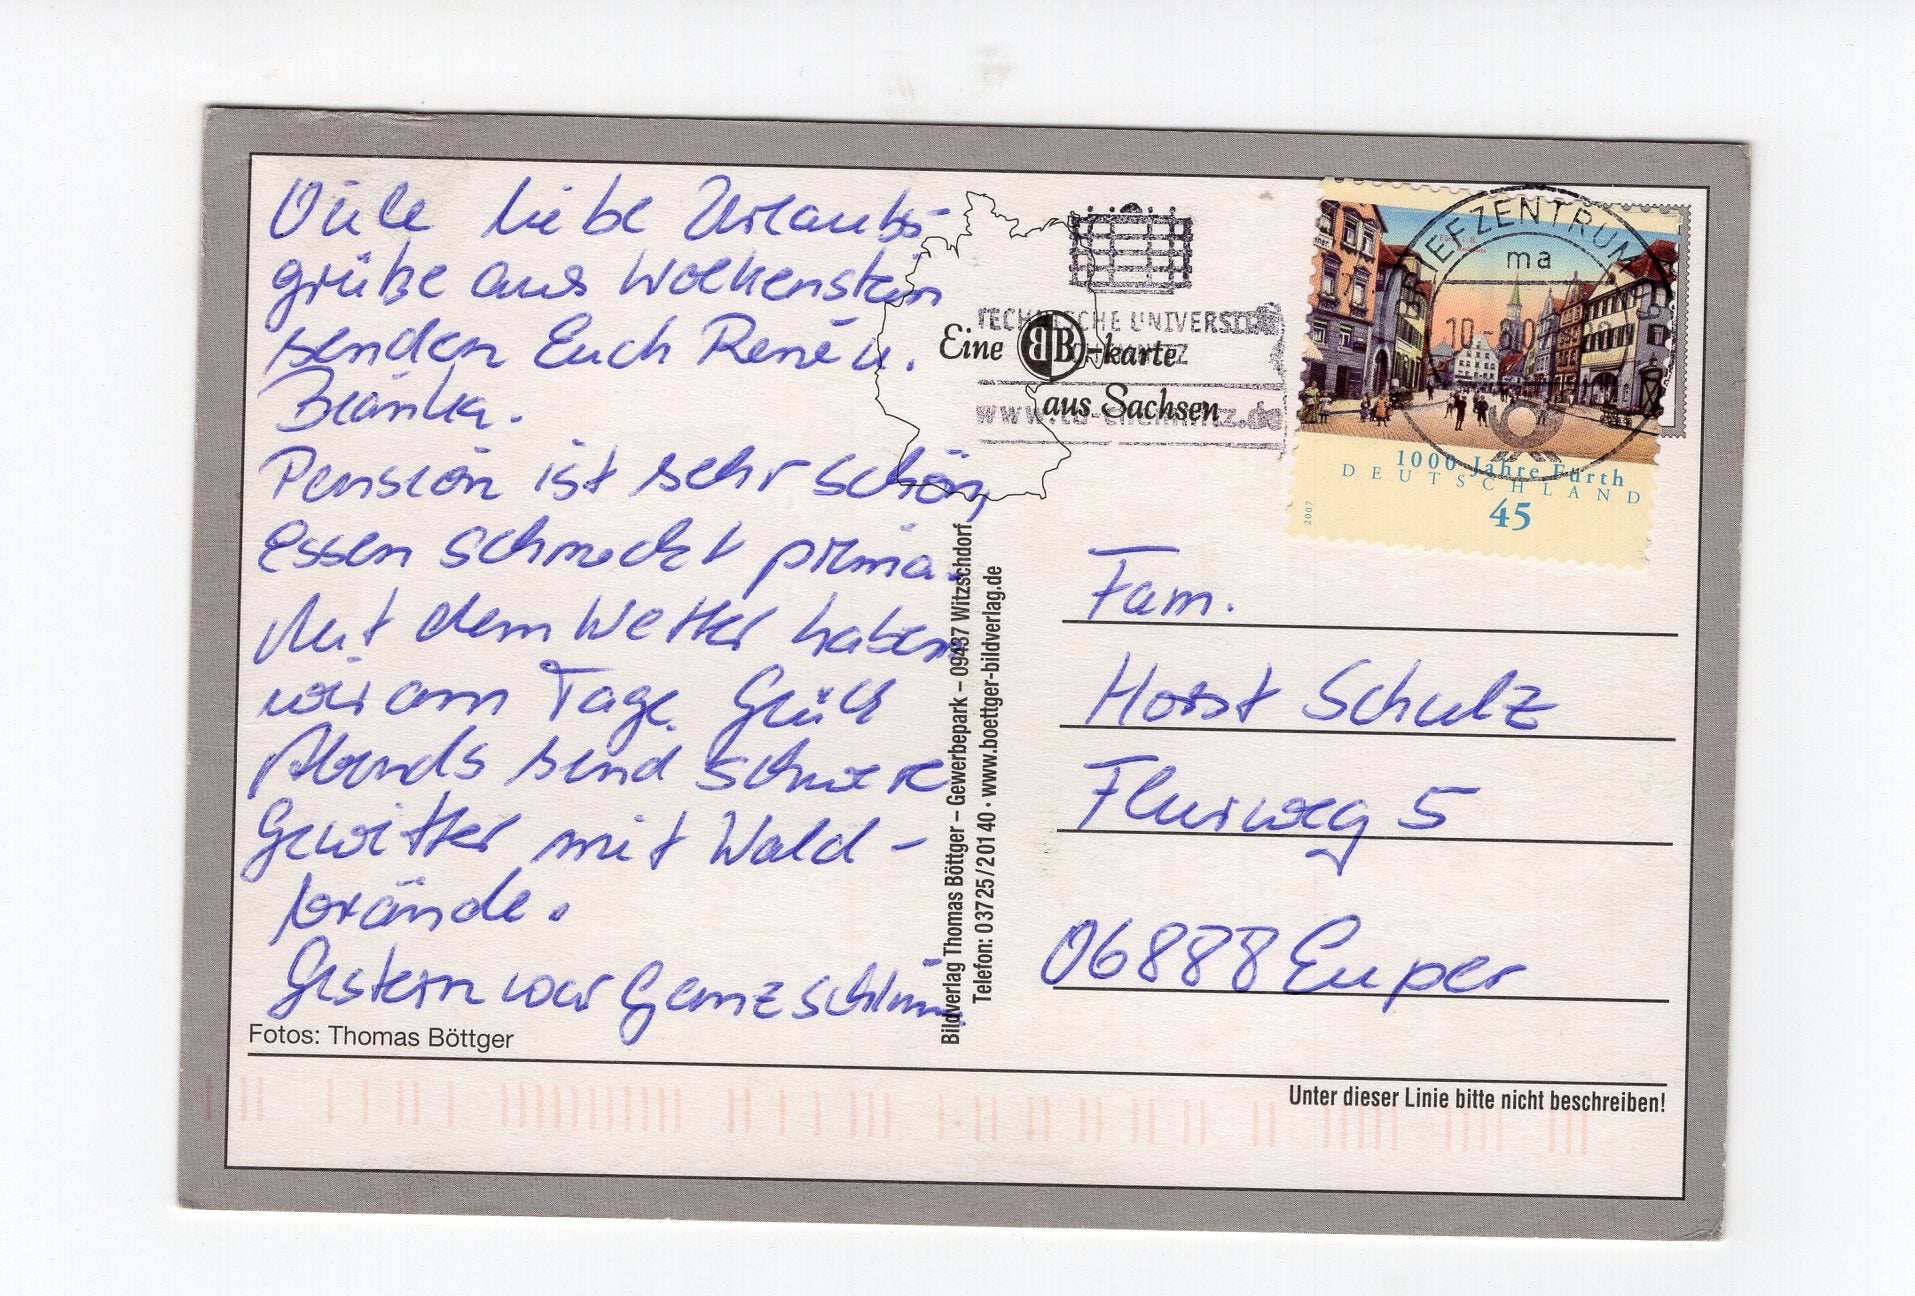 Viele liebe Urlaubs-
grüße aus Wolkenstein
senden Euch René u.
Bianka.
Pension ist sehr schön,
Essen schmeckt prima.
Mit dem Wetter haben
wir am Tage Glück
Abends sind schwere
Gewitter mit Wald-
brände.
Gestern war Ganz schlimm.
Fotos: Thomas Böttger
Eine BB-karte
aus Sachsen
TECHNISCHE UNIVERSITÄT
CHEMNITZ
www.tu-chemnitz.de
BRIEFZENTRUM 09
ma
10.-8.07
1000 Jahre Fürth
DEUTSCHLAND
45
2007
Bildverlag Thomas Böttger – Gewerbepark – 09437 Witzschdorf
Telefon: 03725/20140 · www.boettger-bildverlag.de
Fam.
Horst Schulz
Flurweg 5
06888 Euper
Unter dieser Linie bitte nicht beschreiben!